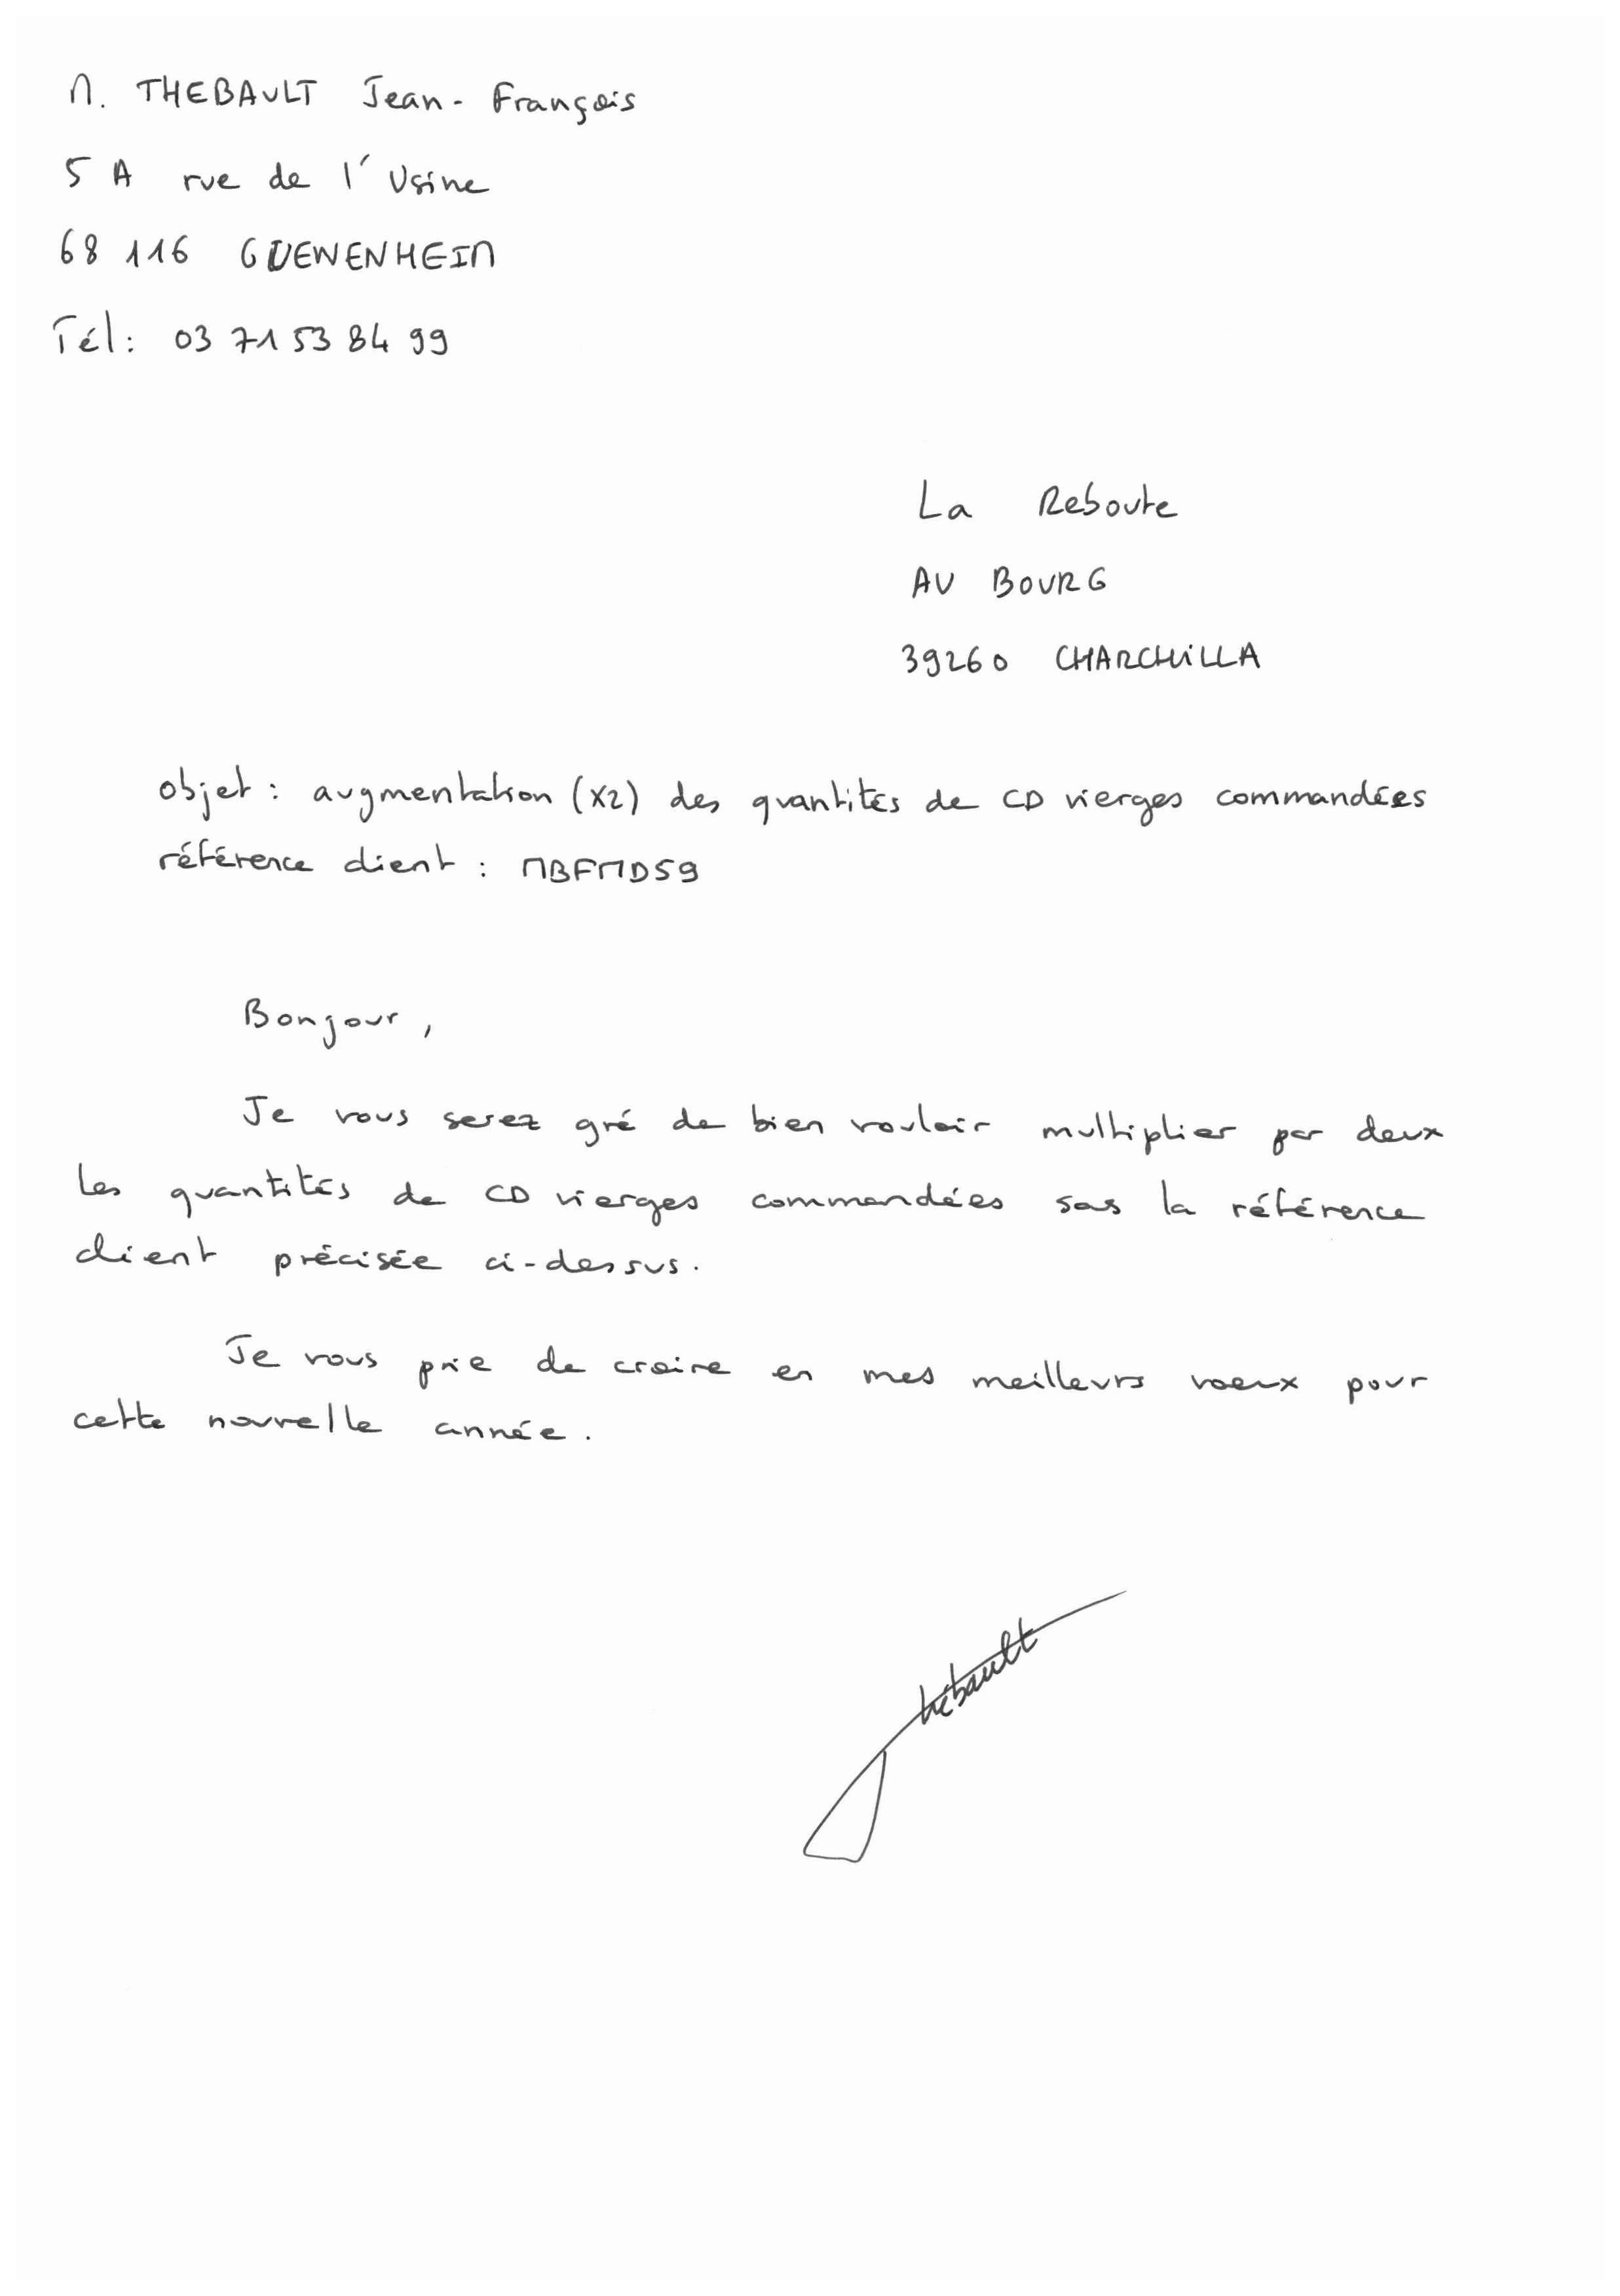 M. THEBAULT Jean-François
5 A rue de l'Usine
68 116 GUEWENHEIM
Tél: 03 71 53 84 99
La Reboute
AU BOURG
39260 CHARCHILLA
objet : augmentation (x2) des quantités de CD vierges commandées
référence client : MBFMD59
Bonjour,
Je vous serez gré de bien vouloir multiplier par deux
les quantités de CD vierges commandées sous la référence
client précisée ci-dessus.
Je vous prie de croire en mes meilleurs voeux pour
cette nouvelle année.
Thébault